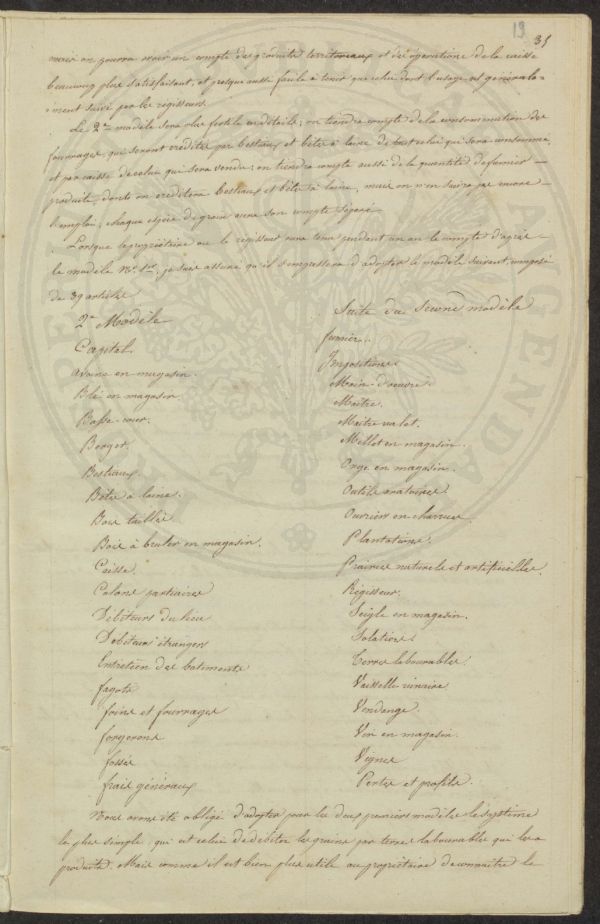 19 35
mais on pourra avoir un compte des produits territoriaux et des opérations de la caisse
beaucoup plus satisfaisant, et presque aussi facile à tenir que celui dont l'usage est générale-
ment suivi par les régisseurs.
Le 2e modèle sera plus fertile en détails; on tiendra compte de la consommation des
fourrages, qui seront crédités par bestiaux et bêtes à laine de tout celui qui sera consommé,
et par caisse de celui qui sera vendu; on tiendra compte aussi de la quantité de fumier
produite, dont on créditera bestiaux et bêtes à laine, mais on n'en suivra pas encore
l'emploi; chaque espèce de grain aura son compte séparé.
Lorsque le propriétaire ou le régisseur aura tenu pendant un an le compte d'après
le modèle No. 1er, je suis assuré qu'il s'empressera d'adopter le modèle suivant, composé
de 39 articles
2e Modèle
Capital.
Avoine en magasin.
Blé en magasin
Basse-cour.
Berger.
Bestiaux.
Bêtes à laine.
Bois taillis
Bois à bruler en magasin.
Caisse.
Colons partiaires
Débiteurs du lieu
Débiteurs étrangers
Entretien des batiments
fagots
foins et fourrages
forgerons
fossés
frais généraux
Suite du Second modèle
fumier.
Impositions.
Main-d'œuvre.
Maître.
Maître valet.
Millet en magasin.
Orge en magasin.
Outils aratoires
Ouvriers en charrues
Plantations.
Prairies naturelles et artificielles.
Régisseur.
Seigle en magasin.
Solations
Terres labourables.
Vaisselle vinaire
Vendange.
Vin en magasin.
Vignes
Pertes et profits.
Nous avons été obligé d'adopter pour les deux premiers modèles le système
le plus simple, qui est celui de débiter les grains par terres labourables qui les a
produits. Mais comme il est bien plus utile au propriétaire de connaître le